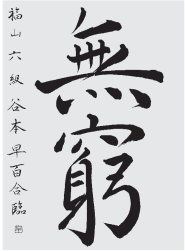 無窮
福山 六級 谷本早百合臨